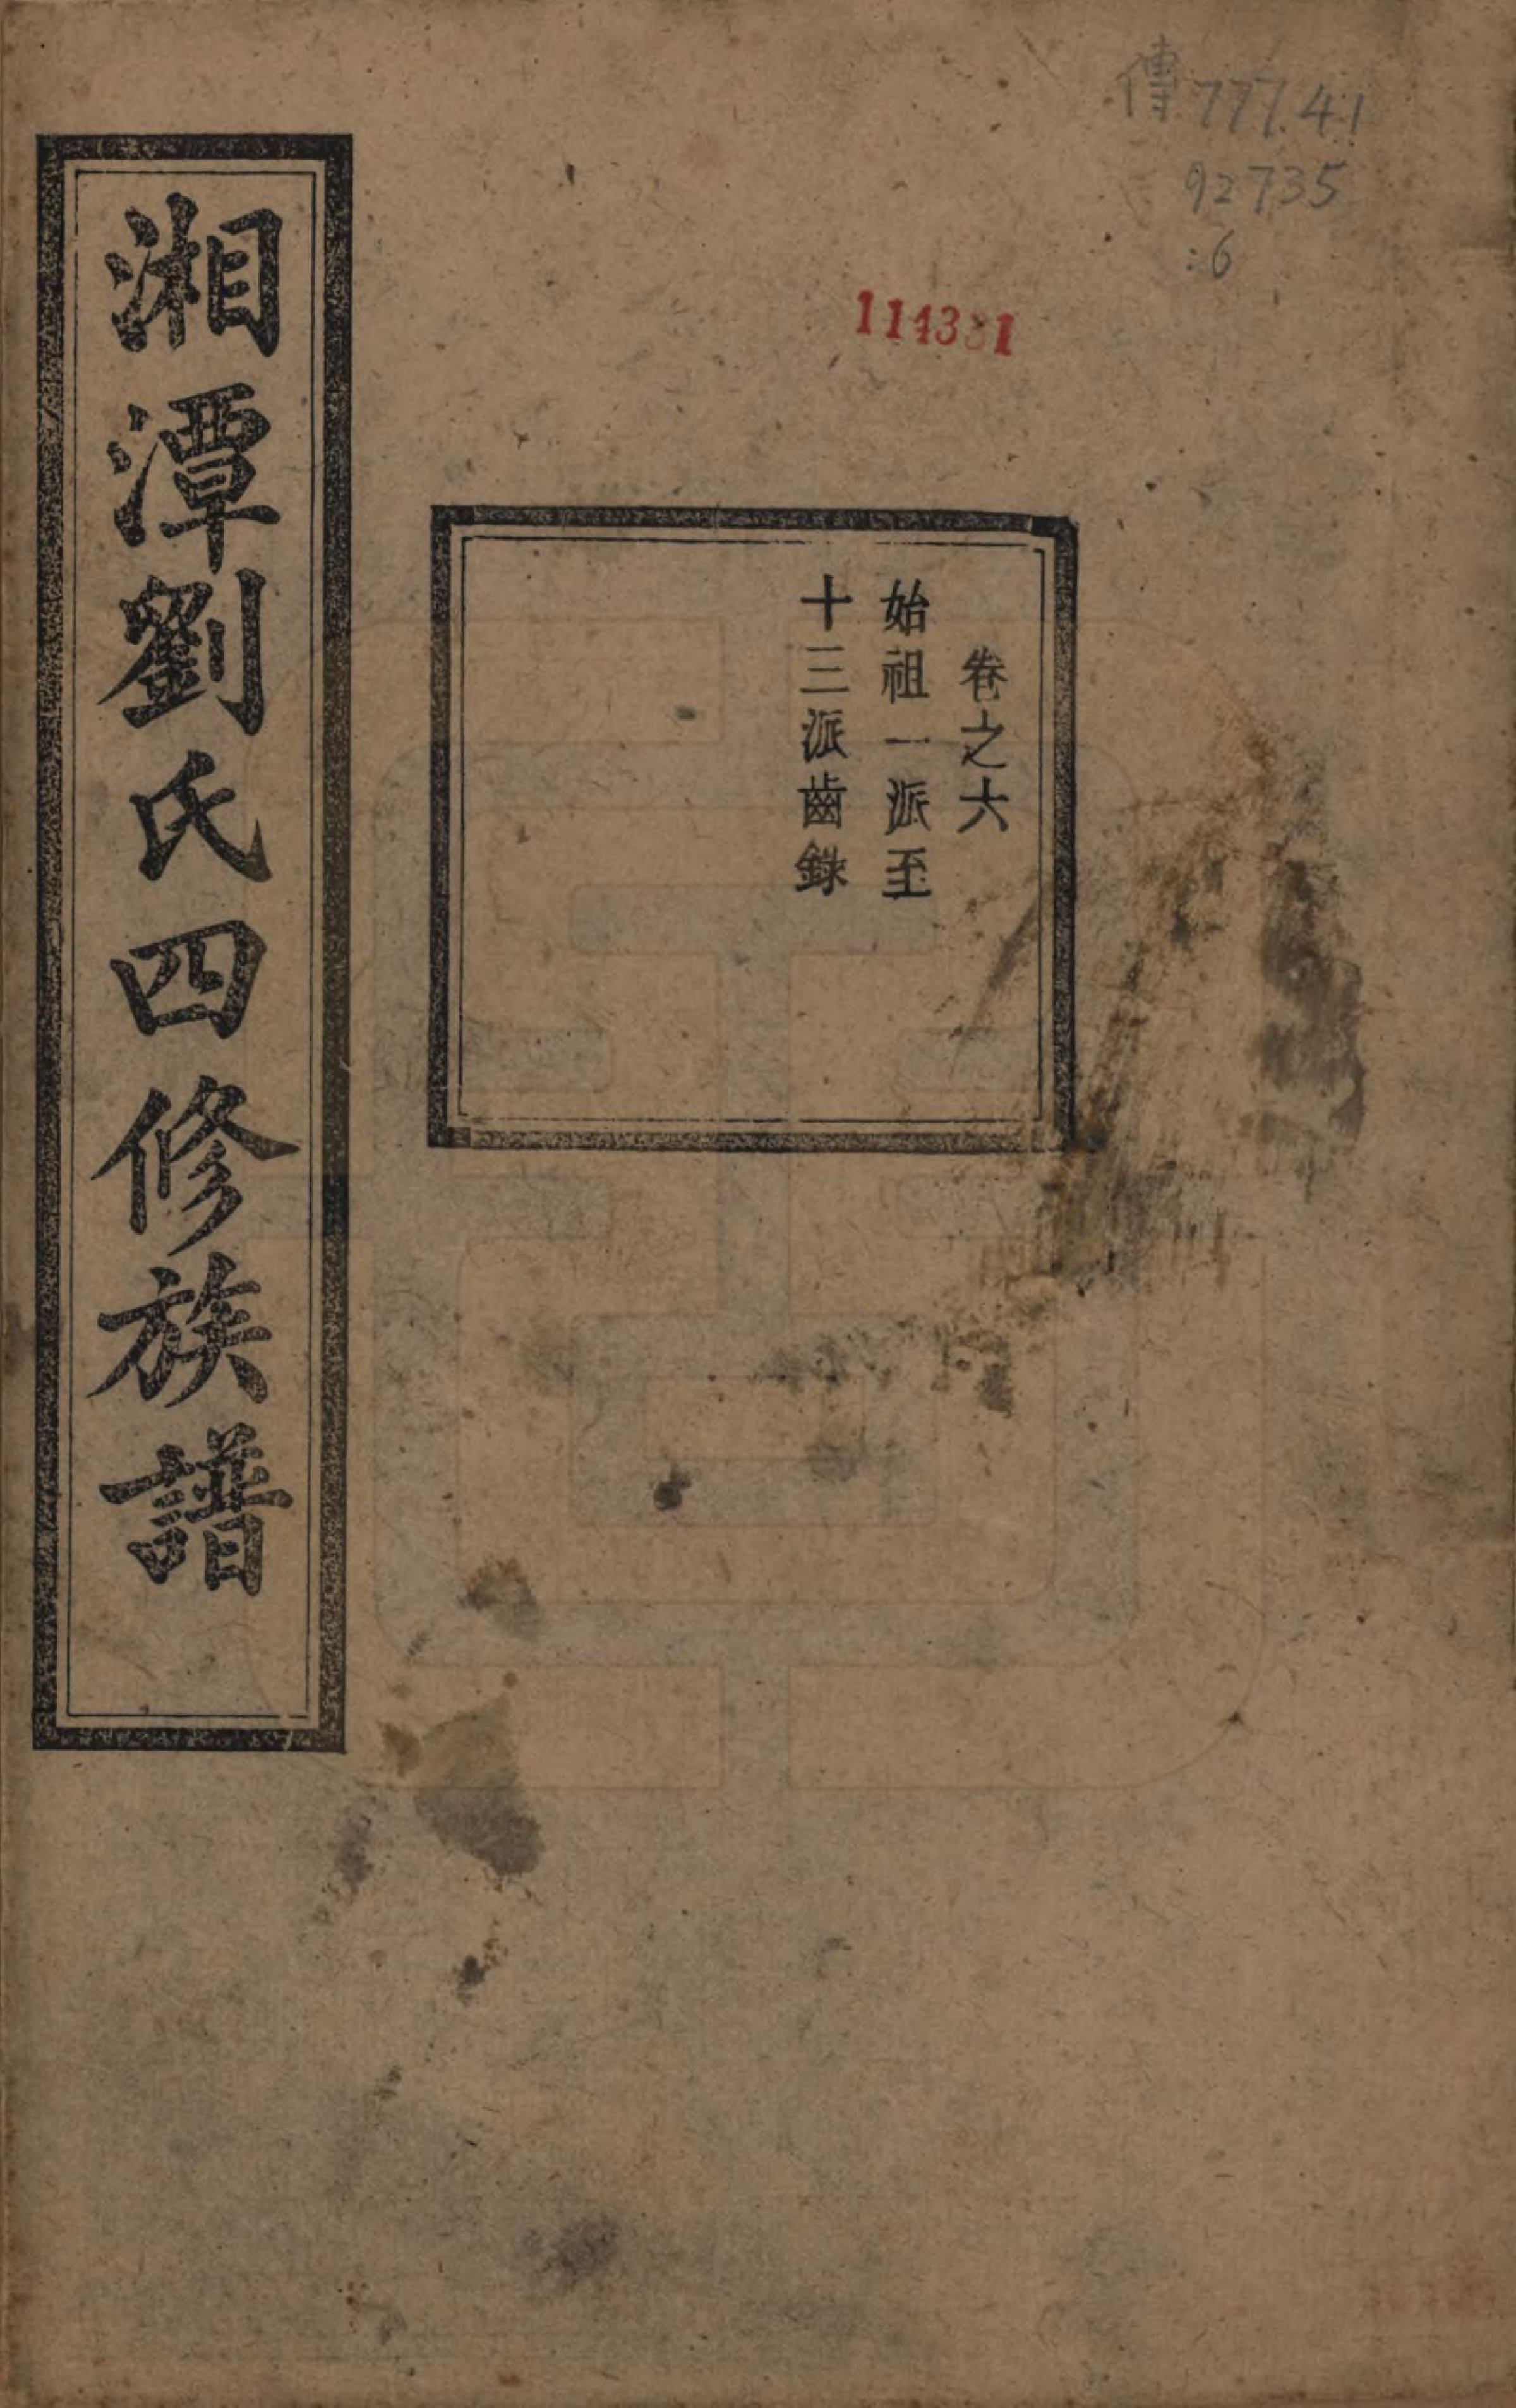 傳777.41
92735
:6
卷之六
始祖一派至
十三派齒錄
湘潭劉氏四修族譜